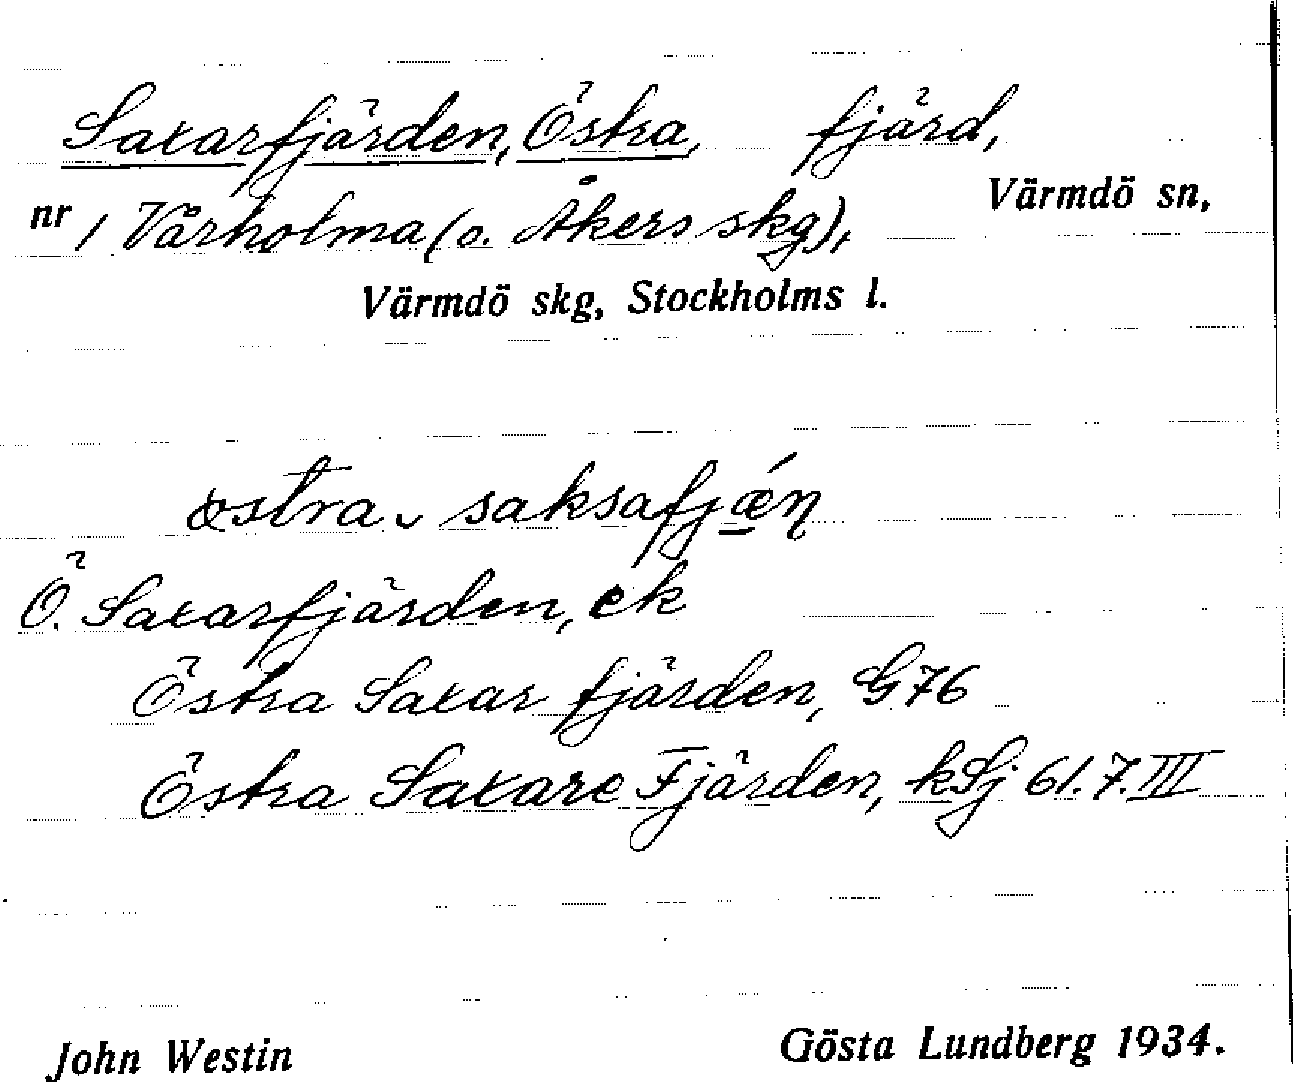 Saxarfjärden, Östra, fjärd,
nr 1 Vårholma (o. Åkers skg), Värmdö sn,
Värmdö skg, Stockholms l.
östra ᴗ saksafjǽn̥
Ö. Saxarfjärden, ek
Östra Saxar fjärden, G76
Östra Saxare Fjärden, kSj 61.7.III
John Westin Gösta Lundberg 1934.